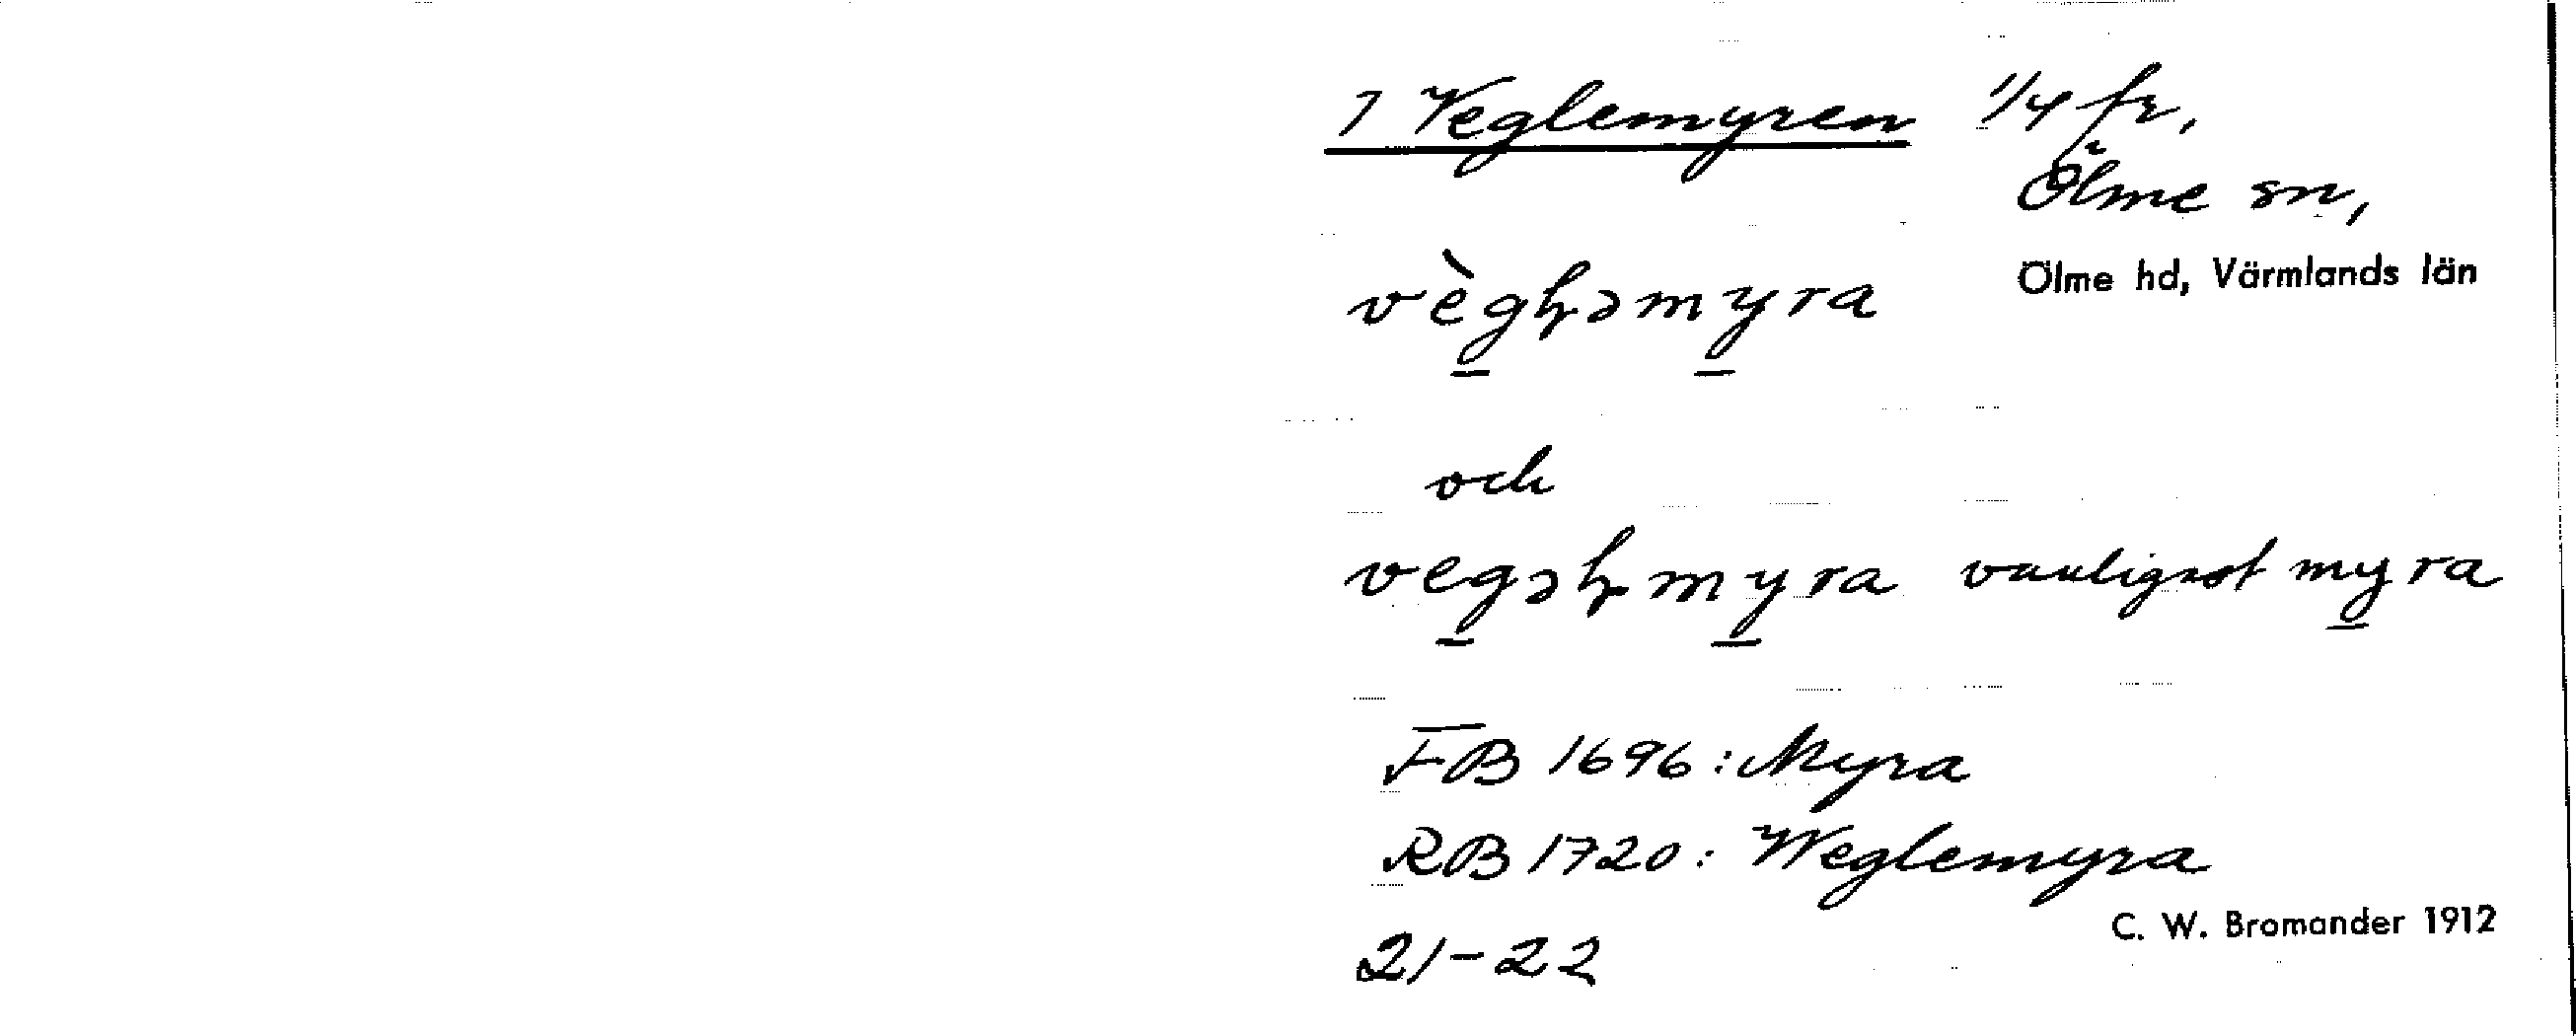 7 Veglemyren 1/4 fr,
Ölme sn,
Ölme hd, Värmlands län
vègɧəmyra
och
vegəɧmyra vanligast myra
FB 1696: Myra
RB 1720: Weglemyra
C. W. Bromander 1912
21-22